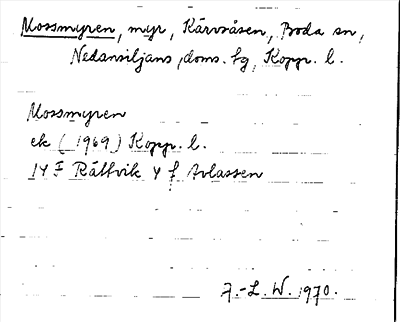 Mossmyren, myr, Kärvsåsen, Boda sn,
Nedansiljans doms. fg, Kopp. l.
Mossmyren
ek (1969) Kopp. l.
14 F Rättvik 4 f
A.-L. W. 1970.